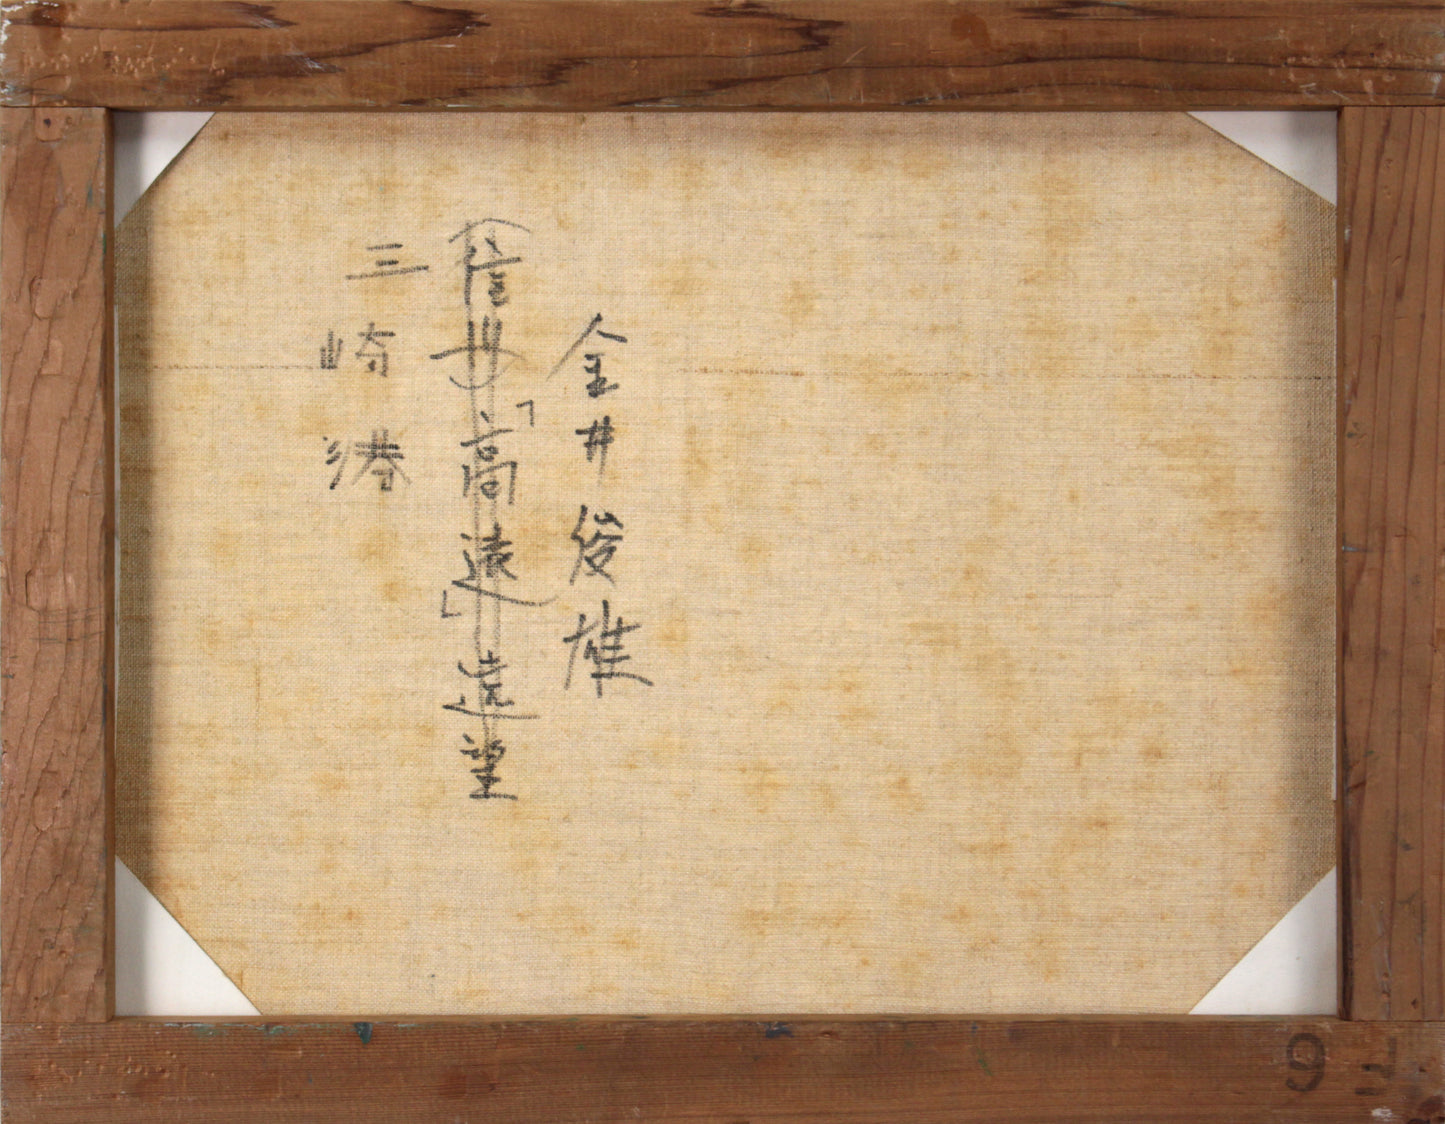 金井俊雄
（信州）「高遠」遠望
三崎港
F6